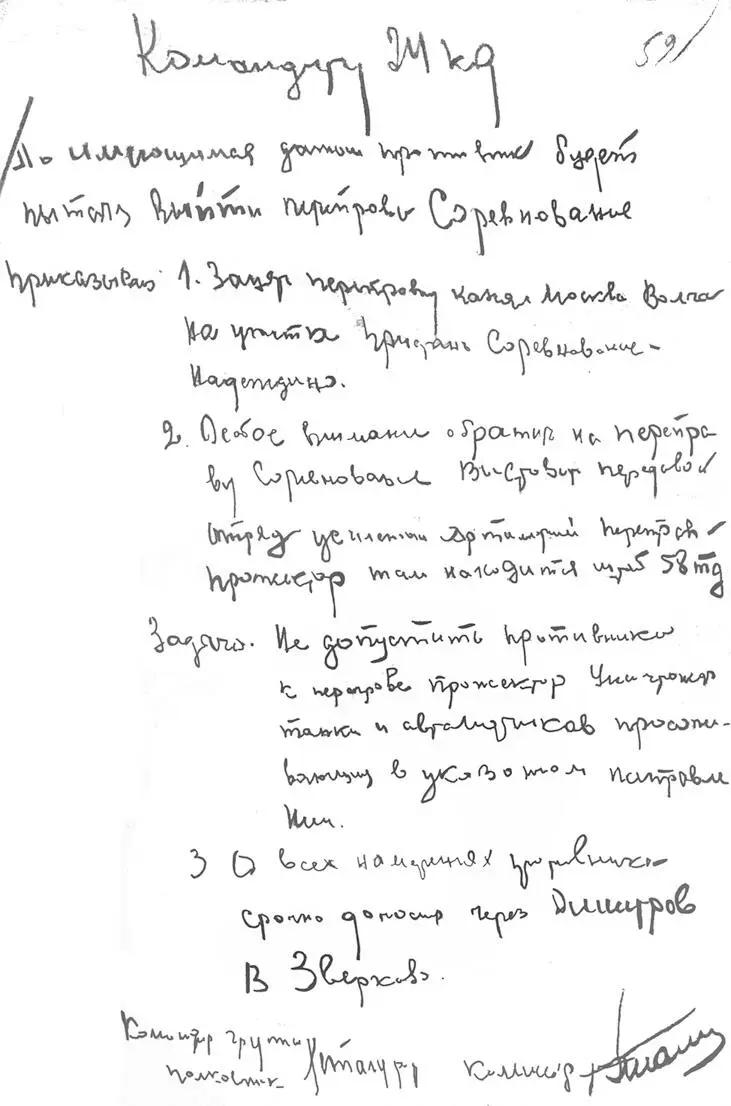 Командиру 24 кд
59
По имеющимся данным противник будет
пытать выйти переправы Соревнование
Приказываю 1. Занять переправу канал Москва Волга
на участке Пристань Соревнование-
Надеждино.
2. Особое внимание обратить на перепра
ву Соревнование Выставить передовой
отряд усиленный артиллерией
Прожектор там находится штаб 58 тд
Задача. Не допустить противника
к переправе Прожектор Уничтожать
танки и автоматчиков просачи-
вающих в указаном направле
нии.
3 О всех противника
срочно доносить через Димитров
в Зверково.
Командир группы
полковник комиссар